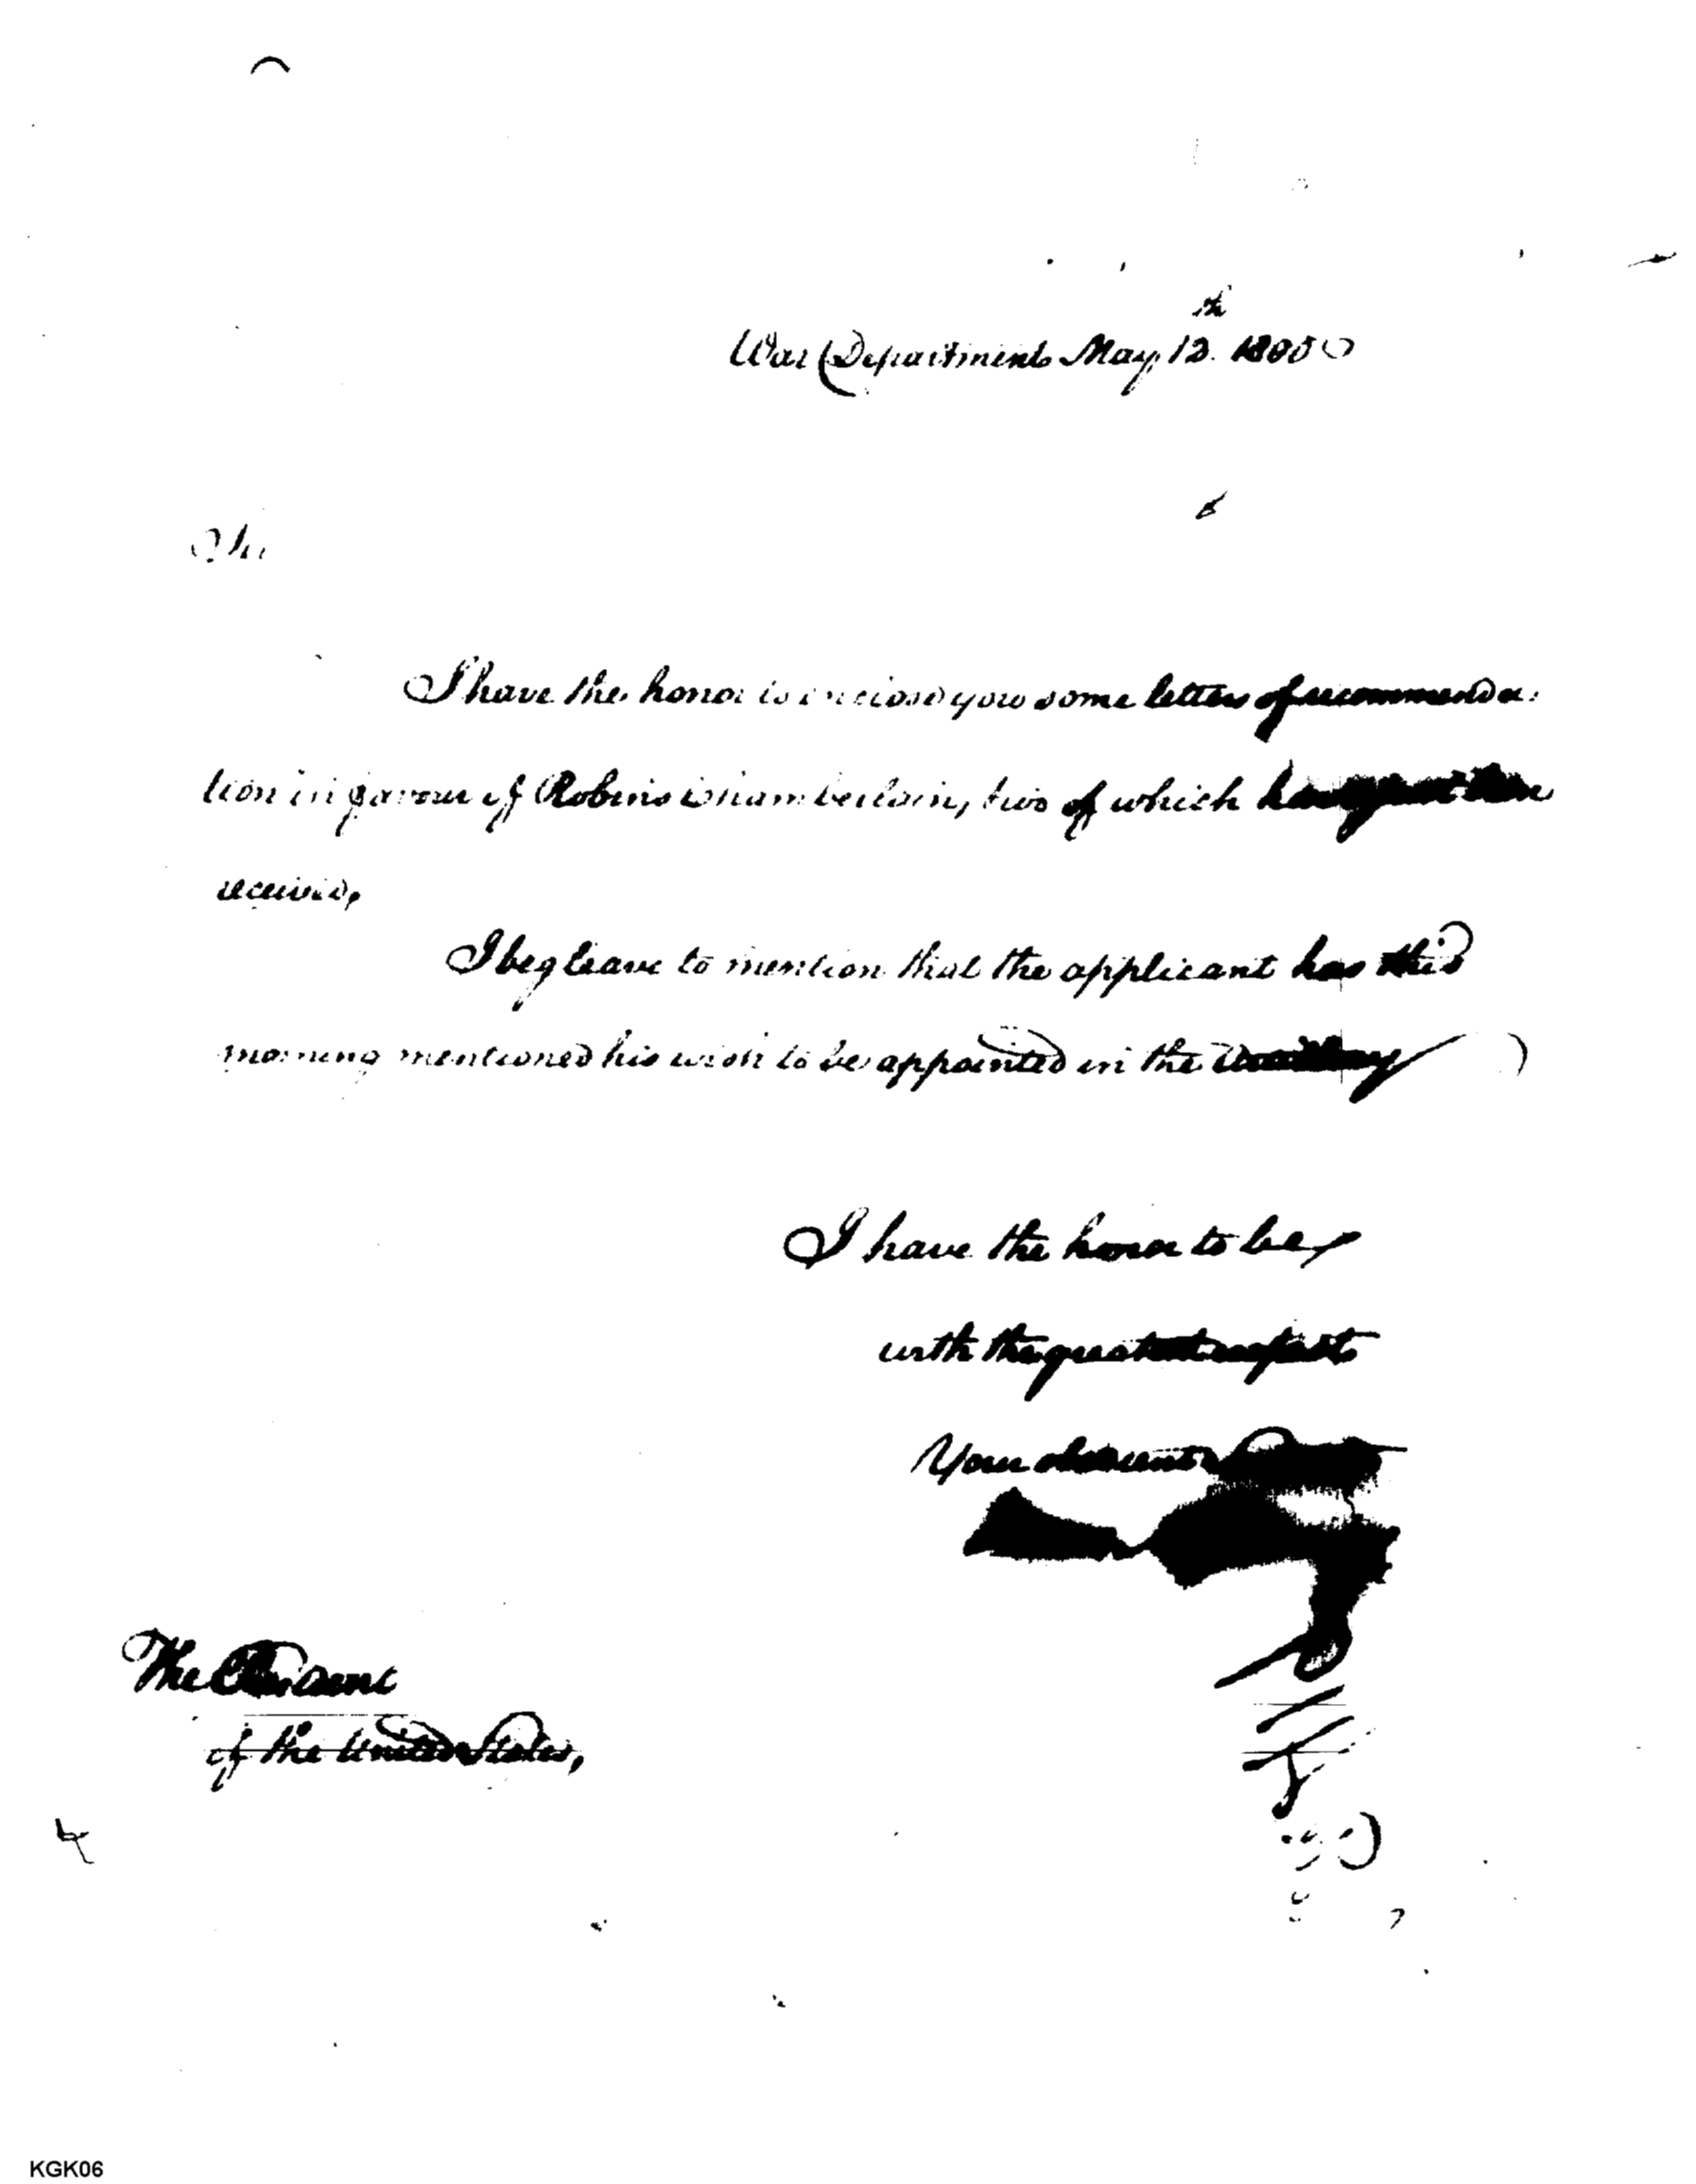 War Department May 12th. 1800
Sir
I have the honor to inclose you some letters of recommenda:
tion in favour of Robins Chamberlain, two of which have just been
received,
I beg leave to mention that the applicant has this
morning mentioned his wish to be appointed in the
I have the honor to be,
with the greatest respect
Your obedient
The President
of the United States,
KGK06